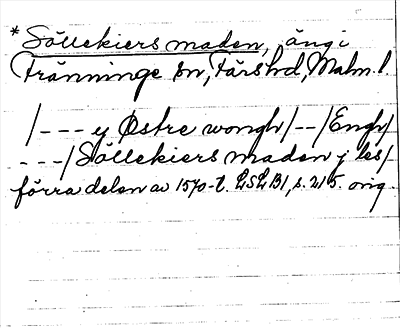 *Söllekiers maden, äng i
Tränninge sn, Färs hd, Malm. l.
/--- y Østre wongh/--/Engh/
---/Söllekiers maden j les/
förra delen av 1570-t. LSLB1, s. 215. orig.